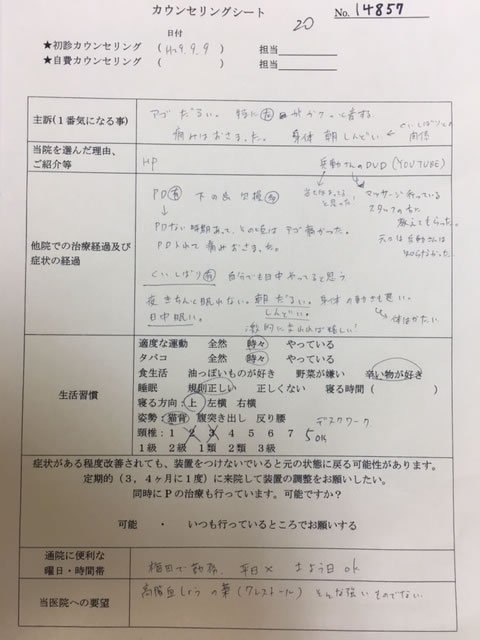 カウンセリングシート
20
No. 14857
日付
★初診カウンセリング ( H29.9.9 ) 担当
★自費カウンセリング ( ) 担当
主訴(1番気になる事)
アゴ だるい。 特に右 が 音する
痛みはおさまった。 身体 朝しんどい ← くいしばりとの関係
当院を選んだ理由、
ご紹介等
HP
兵動さんのDVD(YOUTUBE)
他院での治療経過及び
症状の経過
PD有 下の歯 欠損有
マッサージ行っている
スタッフの方に
教えてもらった。
元々は兵動さんは
知らなかった
PDない時期あって、その頃は アゴ痛かった。
PD入れて 痛みおさまった。
くいしばり有 自分でも日中やってると思う
夜きちんと眠れない。 朝だるい。 身体の動きも悪い。
日中眠い。 しんどい。 体はかたい
劇的に よくなれば嬉しい!
生活習慣
適度な運動 全然 時々 やっている
タバコ 全然 時々 やっている
食生活 油っぽいものが好き 野菜が嫌い 辛い物が好き
睡眠 規則正しい 正しくない 寝る時間( )
寝る方向: 上 左横 右横
姿勢: 猫背 腹突き出し 反り腰 デスクワーク
頸椎: 1 2 3 4 5 6 7 5 OK
1級 2級 1類 2類 3級
症状がある程度改善されても、装置をつけないでいると元の状態に戻る可能性があります。
定期的(3,4ヶ月に1度)に来院して装置の調整をお願いしたい。
同時にPの治療も行っています。可能ですか?
可能 ・ いつも行っているところでお願いする
通院に便利な
曜日・時間帯
梅田で勤務 平日× 土よう日 ok
当医院への要望
高脂血しょう の薬(クレストール) そんな強いものでない